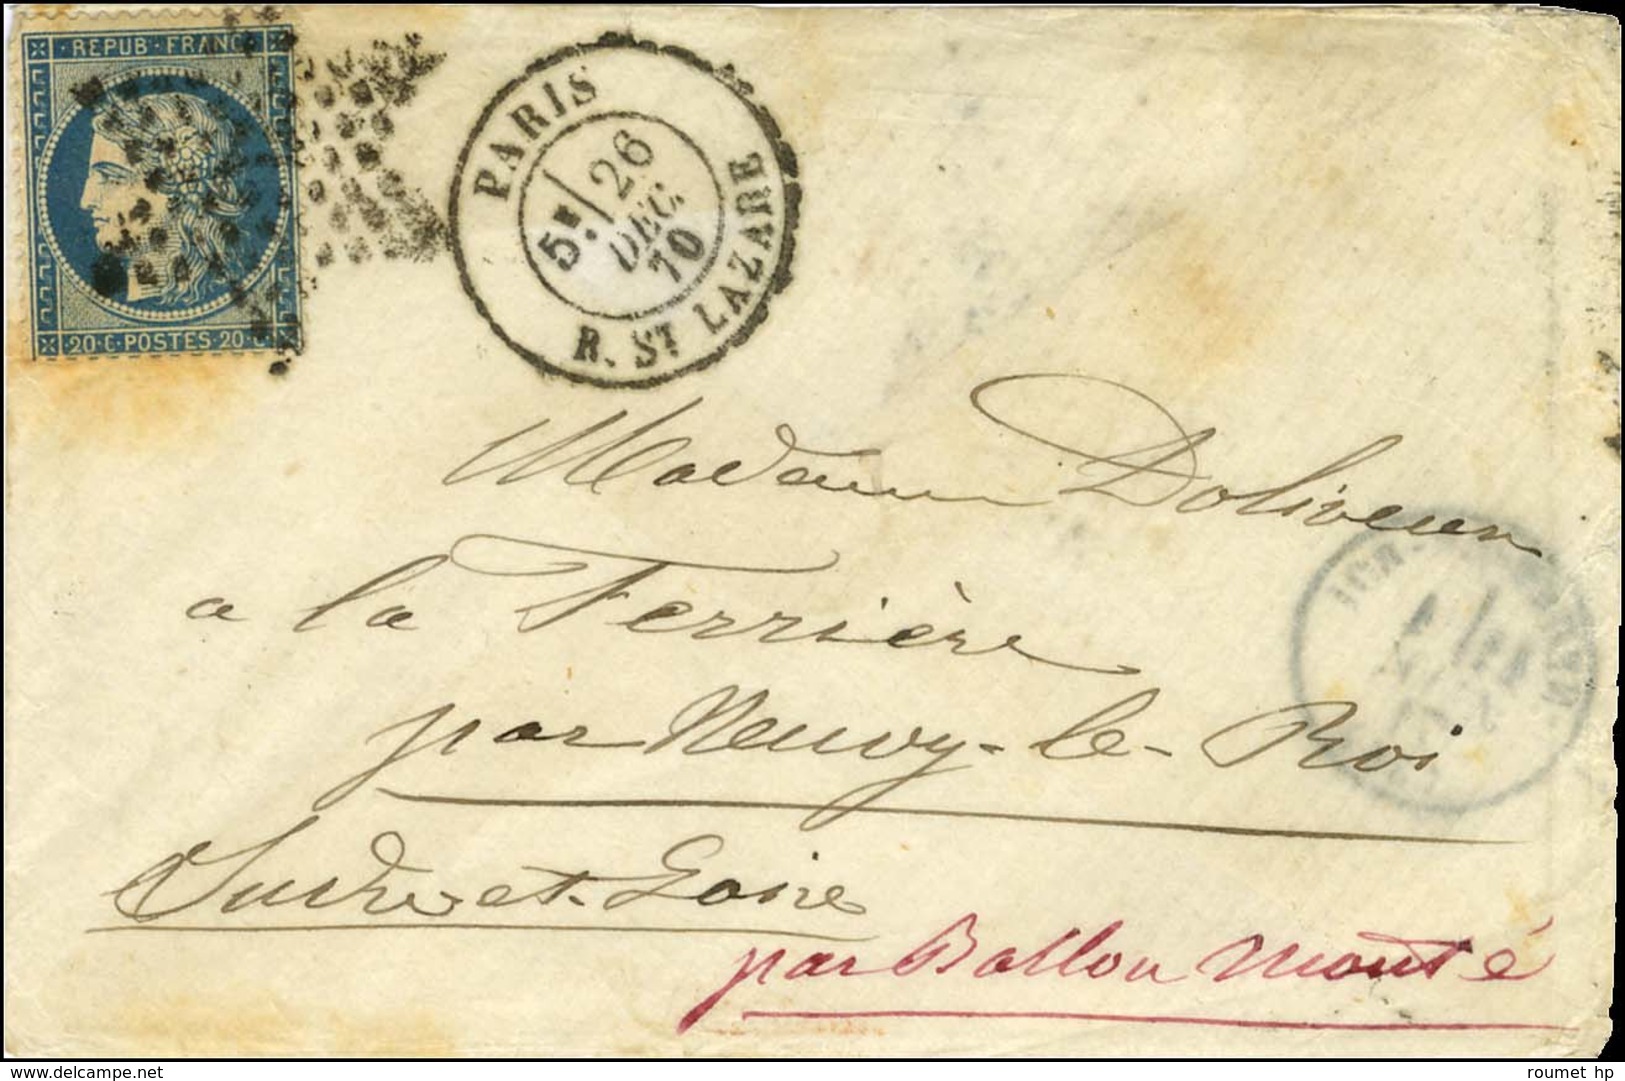 · REPUB · FRANC ·
20 · C · POSTES · 20 · C ·
PARIS
5E / 26
DEC.
70
R. ST LAZARE
Madame Doliveux
a la Ferrière
par Neuvy-le-Roi
Indre et Loire
par Ballon Monté
roumet hp